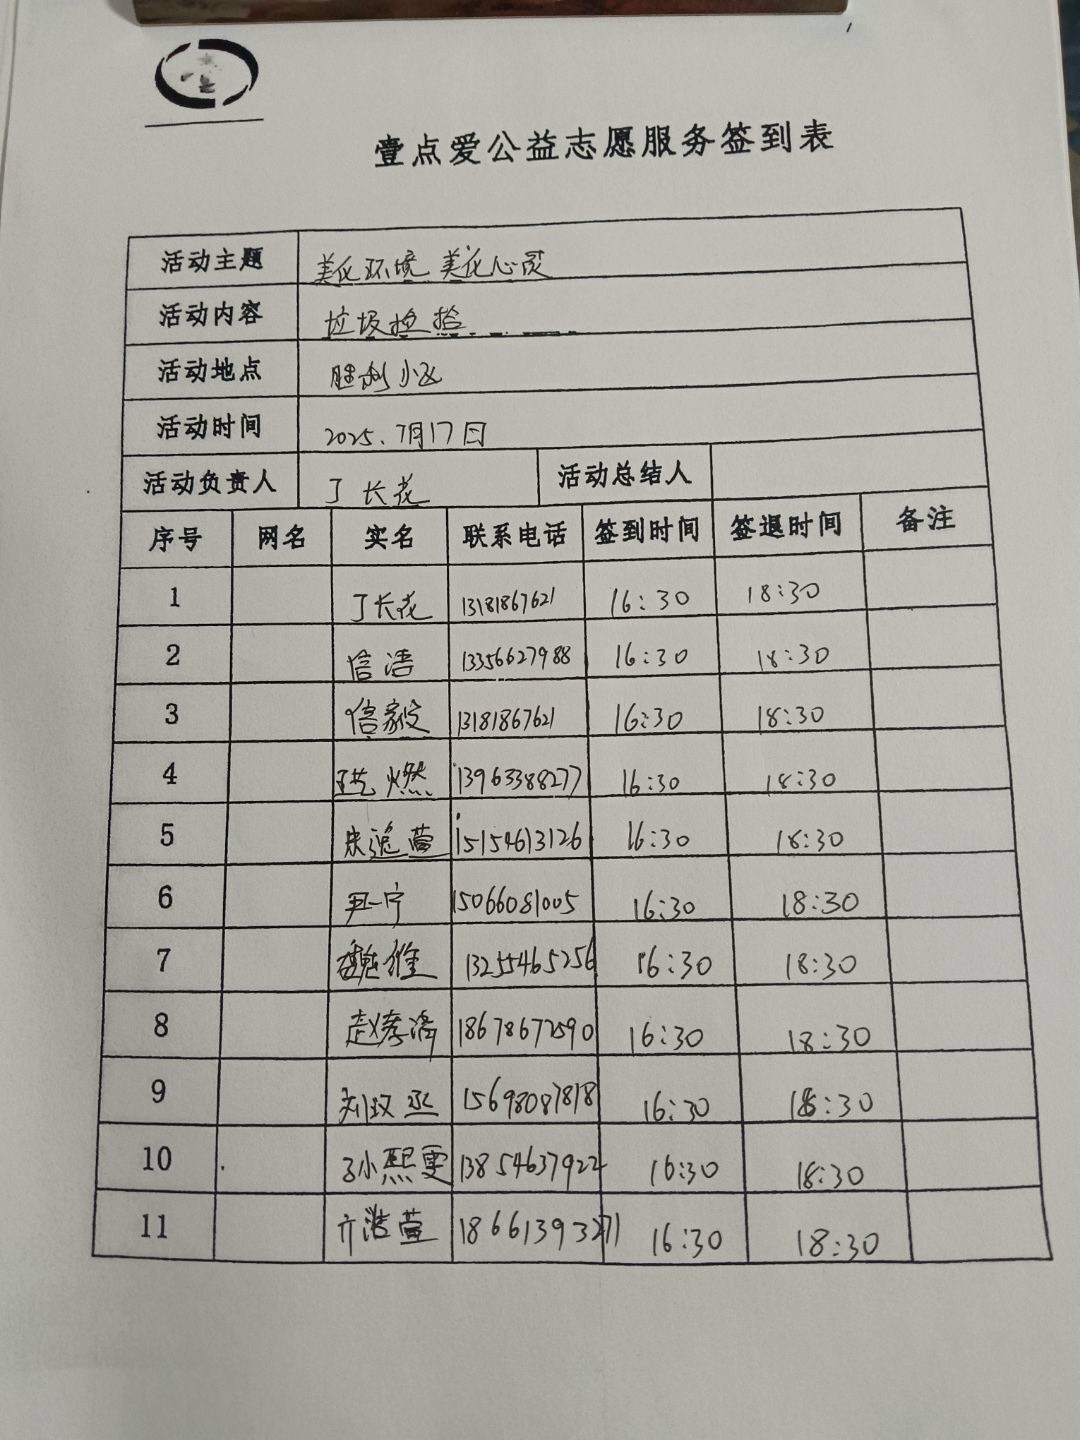 壹点爱公益志愿服务签到表
活动主题 美化环境 美化心灵
活动内容 垃圾捡拾
活动地点 胜利小区
活动时间 2025.7月17日
活动负责人 丁长花 活动总结人
序号 网名 实名 联系电话 签到时间 签退时间 备注
1 丁长花 13181867621 16:30 18:30
2 信语 13356627988 16:30 18:30
3 信毅 13181867621 16:30 18:30
4 燃 13963388277 16:30 18:30
5 萱 15154613126 16:30 18:30
6 尹一宁 15066081005 16:30 18:30
7 魏维 13255465256 16:30 18:30
8 赵孝 18678672590 16:30 18:30
9 刘玟丞 15698087818 16:30 18:30
10 孙熙雯 13854637922 16:30 18:30
11 齐浩萱 18661393271 16:30 18:30